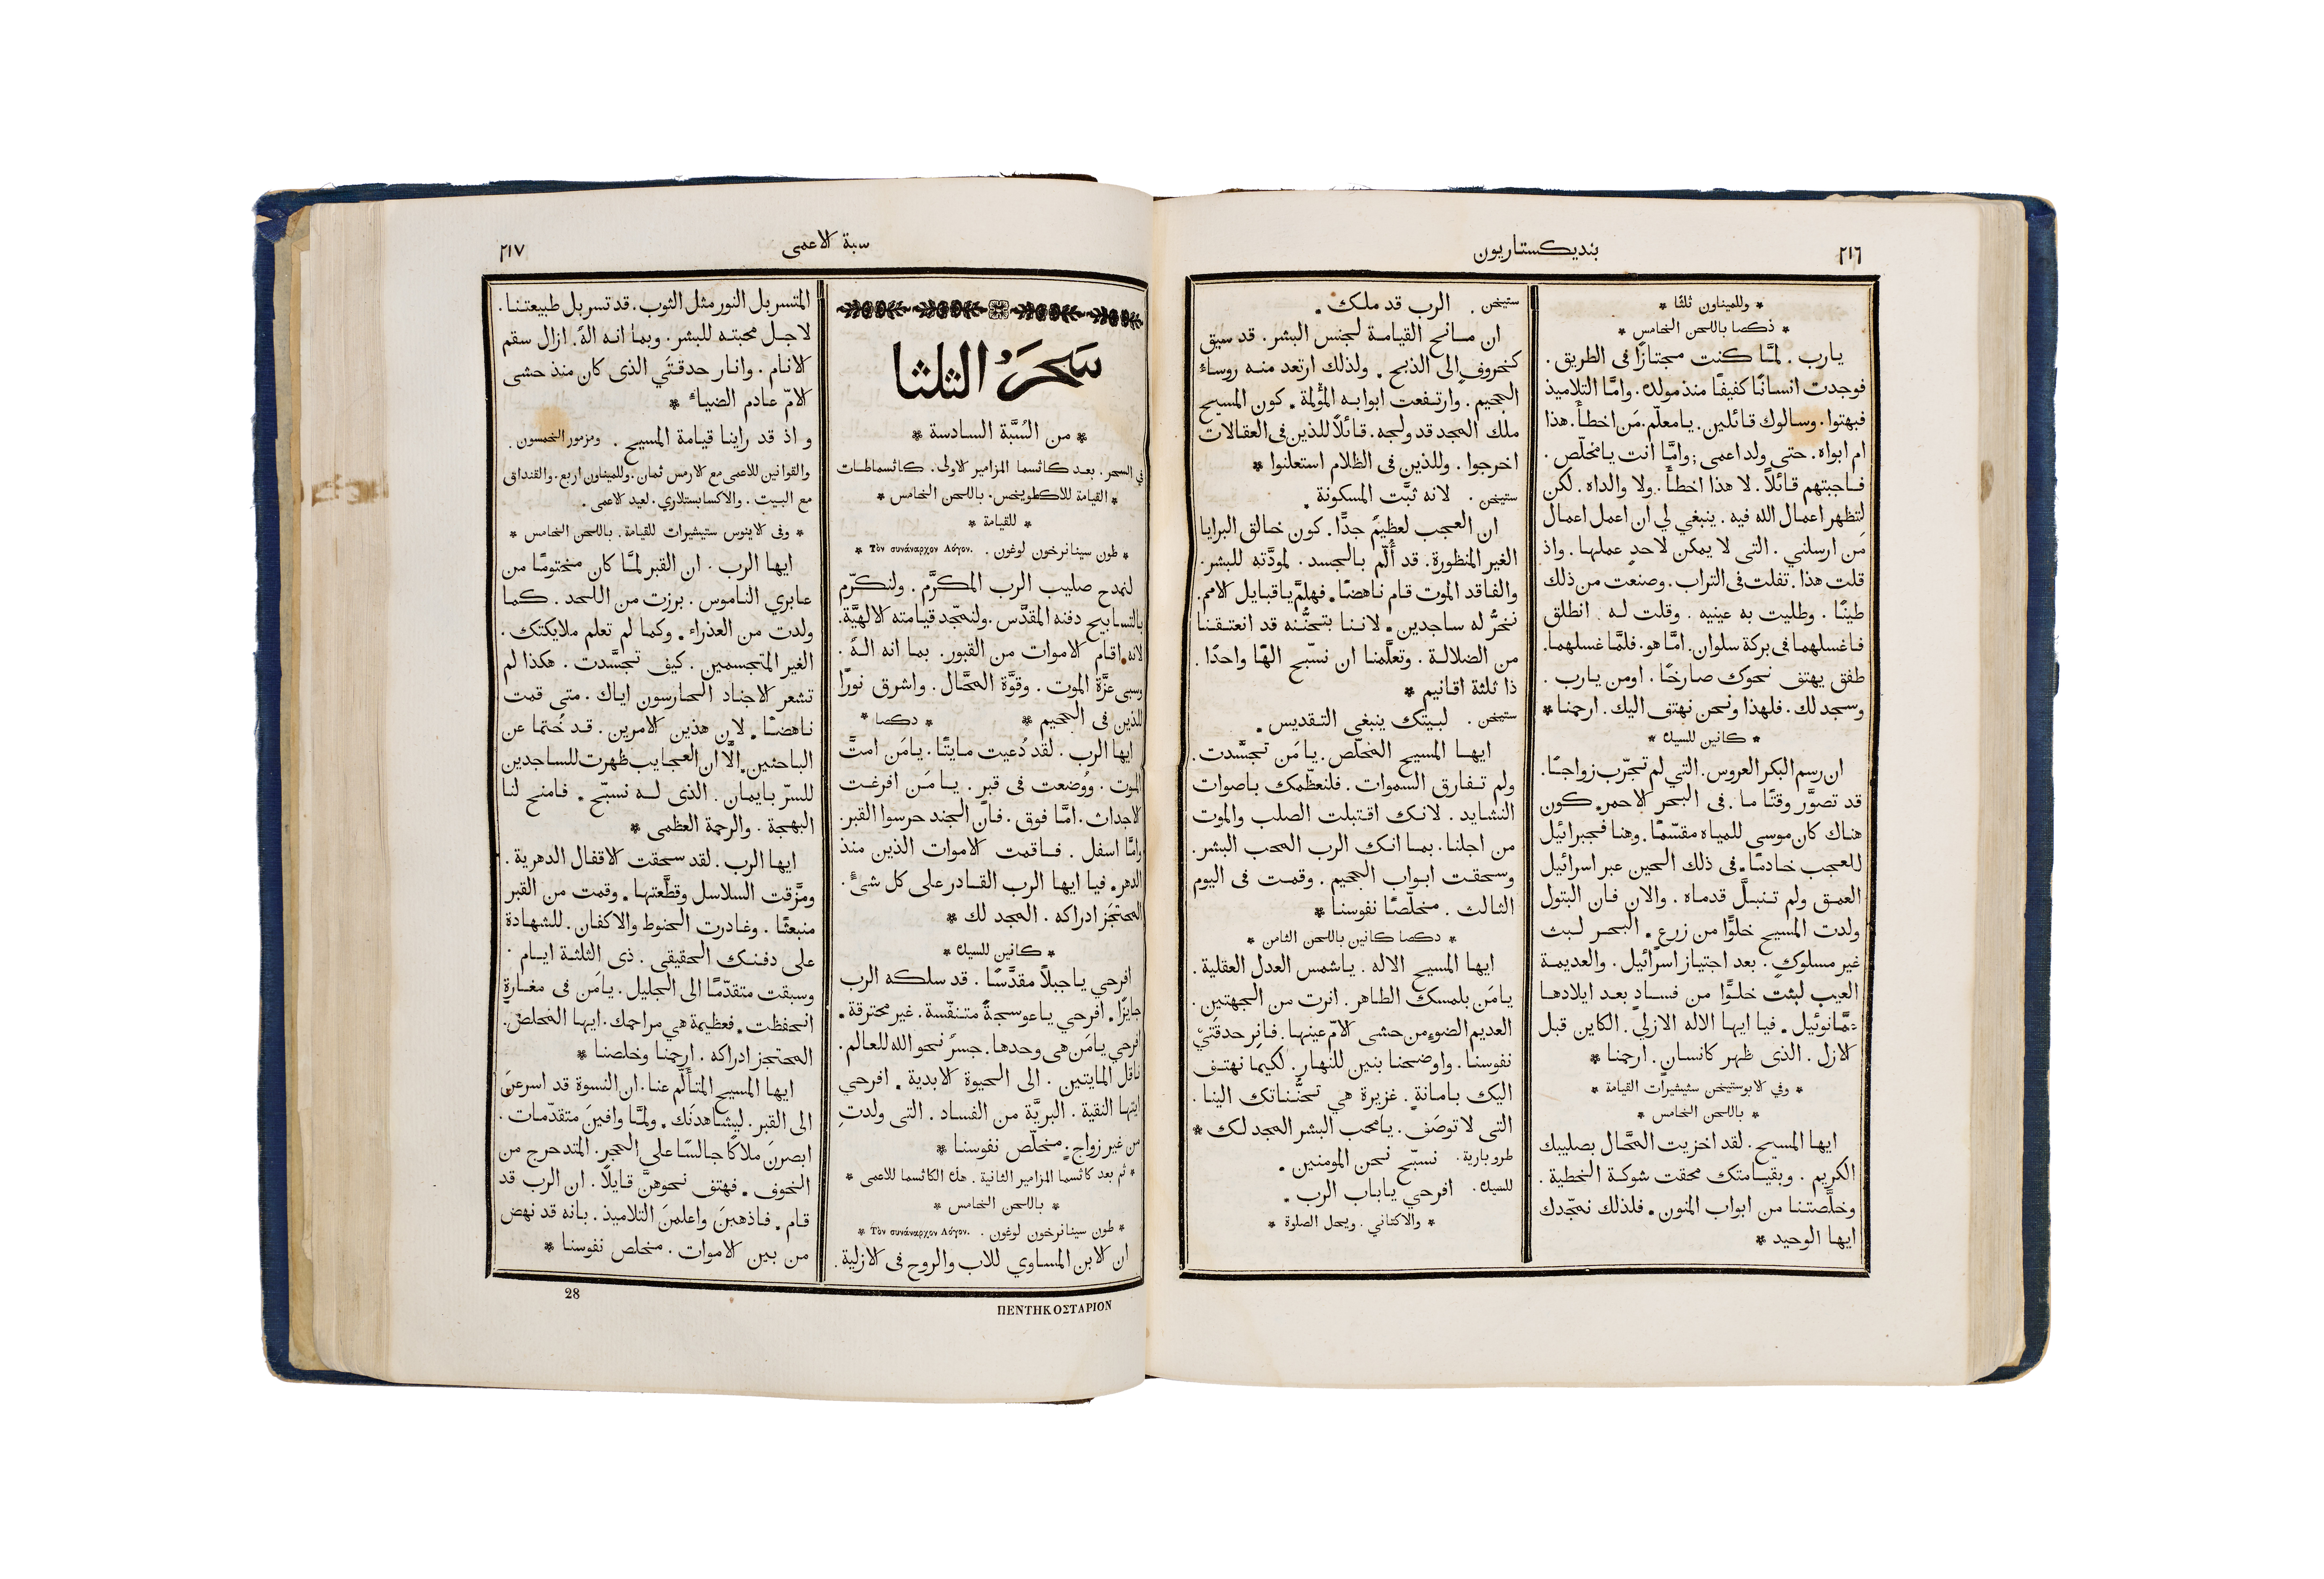 ٢١٦
بنديكستاريون
* وللميناون ثلثا *
* ذكصا باللحن الخامس *
يارب . لمَّا كنت مجتازًا فى الطريق .
فوجدت انسانًا كفيفًا منذ مولده . وامَّا التلاميذ
فبهتوا . وسالوك قائلين . يا معلّم . مَن اخطأ . هذا
ام ابواه . حتى ولد اعمى ; وامَّا انت يا مخلّص .
فاجبتهم قائلاً . لا هذا اخطأ . ولا والداه . لكن
لتظهر اعمال الله فيه . ينبغي لي ان اعمل اعمال
مَن ارسلني . التى لا يمكن لاحدٍ عملها . واذ
قلت هذا . تفلت فى التراب . وصنعت من ذلك
طينًا . وطليت به عينيه . وقلت له . انطلق
فاغسلهما فى بركة سلوان . امَّا هو . فلمَّا غسلهما .
طفق يهتف نحوك صارخًا . اومن يارب .
وسجد لك . فلهذا ونحن نهتف اليك . ارحمنا *
* كانين للسيك *
ان رسم البكر العروس . التي لم تجرّب زواجًا .
قد تصوَّر وقتًا ما . فى البحر الاحمر . كون
هناك كان موسى للمياه مقسّمًا . وهنا فجبرائيل
للعجب خادمًا . فى ذلك الحين عبر اسرائيل
العمق ولم تنبلَّ قدماه . والان فان البتول
ولدت المسيح خلوًّا من زرع . البحر لبث
غير مسلوكٍ . بعد اجتياز اسرائيل . والعديمة
العيب لبثت خلوًّا من فسادٍ بعد ايلادها
عمَّانوئيل . فيا ايها الاله الازلي . الكاين قبل
الازل . الذى ظهر كانسانٍ . ارحمنا *
* وفي الابوستيخن ستيشيرات القيامة *
* باللحن الخامس *
ايها المسيح . لقد اخزيت المحَّال بصليبك
الكريم . وبقيامتك محقت شوكة الخطية .
وخلَّصتنا من ابواب المنون . فلذلك نمجّدك
ايها الوحيد *
ستيخن . الرب قد ملك .
ان مانح القيامة لجنس البشر . قد سيق
كخروفٍ الى الذبح . ولذلك ارتعد منه روساءُ
الجحيم . وارتفعت ابوابه المؤلمة . كون المسيح
ملك المجد قد ولجه . قائلاً للذين فى العقالات
اخرجوا . وللذين فى الظلام استعلنوا *
ستيخن . لانه ثبَّت المسكونة .
ان العجب لعظيمٌ جدًّا . كون خالق البرايا
الغير المنظورة . قد أُلم بالجسد . لمودَّته للبشر .
والفاقد الموت قام ناهضًا . فهلمَّ يا قبايل الامم .
نخرُّ له ساجدين . لاننا بتحنُّنه قد انعتقنا
من الضلالة . وتعلَّمنا ان نسّبح الهًا واحدًا .
ذا ثلثة اقانيم *
ستيخن . لبيتك ينبغى التقديس .
ايها المسيح المخلّص . يا مَن تجسَّدت .
ولم تفارق السموات . فلنعظّمك باصوات
النشايد . لانك اقتبلت الصلب والموت
من اجلنا . بما انك الرب المحب البشر .
وسحقت ابواب الجحيم . وقمت فى اليوم
الثالث . مخلّصًا نفوسنا *
* دكصا كانين باللحن الثامن *
ايها المسيح الاله . يا شمس العدل العقلية .
يا مَن بلمسك الطاهر . انرت من الجهتين .
العديم الضوءِ من حشى الامّ عينها . فانِر حدقتَيْ
نفوسنا . واوضحنا بنين للنهار . لكيما نهتف
اليك بامانةٍ . غزيرة هي تحنُّناتك الينا .
التى لا توصَف . يا محب البشر المجد لك *
طروبارية . نسبّح نحن المومنين .
للسيك . افرحي يا باب الرب .
* والاكتاني . ويحل الصلوة *
سبة الاعمى
٢١٧
سَحَرُ الثلثا
* من السُبَّة السادسة *
في السحر . بعد كاثسما المزامير الاولى . كاثسماطات
* القيامة للاكطويخس . باللحن الخامس *
* للقيامة *
* طون سينانرخون لوغون . Τὸν συνάναρχον Λόγον. *
لنمدح صليب الرب المكرَّم . ولنكرّم
بالتسابيح دفنه المقدَّس . ولنمجّد قيامته الالهيَّة .
لانه . اقام الاموات من القبور . بما انه الهٌ .
وسبى عزَّة الموت . وقوَّة المحَّال . واشرق نورًا
للذين فى الجحيم * * دكصا *
ايها الرب . لقد دُعيت مايتًا . يا مَن امتَّ
الموت . ووُضعت فى قبرٍ . يا مَن افرغت
الاجداث . امَّا فوق . فان الجند حرسوا القبر .
وامَّا اسفل . فاقمت الاموات الذين منذ
الدهر . فيا ايها الرب القادر على كل شىءٍ .
المحتجَز ادراكه . المجد لك *
* كانين للسيك *
افرحي يا جبلاً مقدَّسًا . قد سلكه الرب
جايزًا . افرحي يا عوسجةً متنفّسة . غير محترقة .
افرحي يا مَن هى وحدها . جسرٌ نحو الله للعالم .
ناقل المايتين . الى الحيوة الابدية . افرحي
ايتها النقية . البريَّة من الفساد . التى ولدتِ
من غير زواجٍ . مخلّص نفوسنا *
* ثم بعد كاثسما المزامير الثانية . هذه الكاثسما للاعمى *
* باللحن الخامس *
* طون سينانرخون لوغون . Τὸν συνάναρχον Λόγον. *
ان الابن المساوي للاب والروح فى الازلية .
المتسربل النور مثل الثوب . قد تسربل طبيعتنا .
لاجل محبته للبشر . وبما انه الهٌ . ازال سقم
الانام . وانار حدقتَي الذى كان منذ حشى
الامّ عادم الضياءِ *
و اذ قد راينا قيامة المسيح . ومزمور الخمسون .
والقوانين للاعمى مع الارمس ثمان . وللميناون اربع . والقنداق
مع البيت . والاكسابستلاري . لعيد الاعمى .
* وفى الاينوس ستيشيرات للقيامة . باللحن الخامس *
ايها الرب . ان القبر لمَّا كان مختومًا من
عابري الناموس . برزت من اللحد . كما
ولدت من العذراء . وكما لم تعلم ملايكتك .
الغير المتجسمين . كيف تجسَّدت . هكذا لم
تشعر الاجناد الحارسون اياك . متى قمت
ناهضًا . لان هذين الامرين . قد خُتما عن
الباحثين . الَّا ان العجايب ظهرت للساجدين
للسرّ بايمان . الذى له نسبّح . فامنح لنا
البهجة . والرحمة العظمى *
ايها الرب . لقد سحقت الاقفال الدهرية .
ومزَّقت السلاسل وقطَّعتها . وقمت من القبر
منبعثًا . وغادرت الحنوط والاكفان . للشهادة
على دفنك الحقيقى . ذى الثلثة ايام .
وسبقت متقدّمًا الى الجليل . يا مَن فى مغارةٍ
انحفظت . فعظيمة هي مراحمك . ايها المخلص .
المحتجز ادراكه . ارحمنا وخلصنا *
ايها المسيح المتألّم عنا . ان النسوة قد اسرعنَ
الى القبر . ليشاهدنَك . ولمَّا وافينَ متقدّمات .
ابصرنَ ملاكًا جالسًا على الحجر . المتدحرج من
الخوف . فهتف نحوهنَّ قايلاً . ان الرب قد
قام . فاذهبنَ واعلمنَ التلاميذ . بانه قد نهض
من بين الاموات . مخلص نفوسنا *
28
ΠΕΝΤΗΚΟΣΤΑΡΙΟΝ